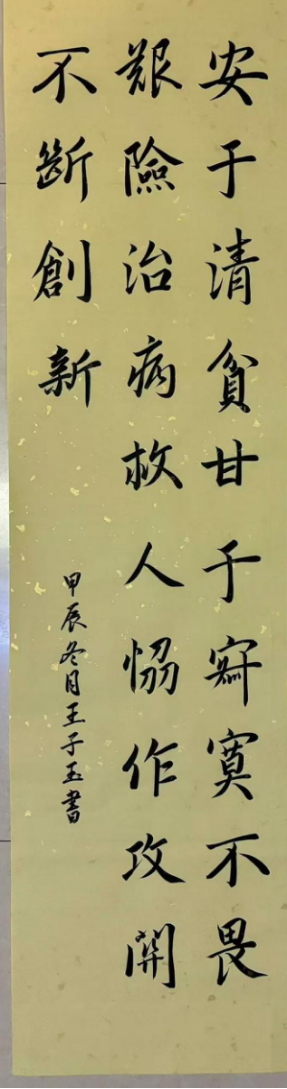 安于清貧甘于寂寞不畏
艱險治病救人協作攻關
不斷創新
甲辰冬月王子玉書